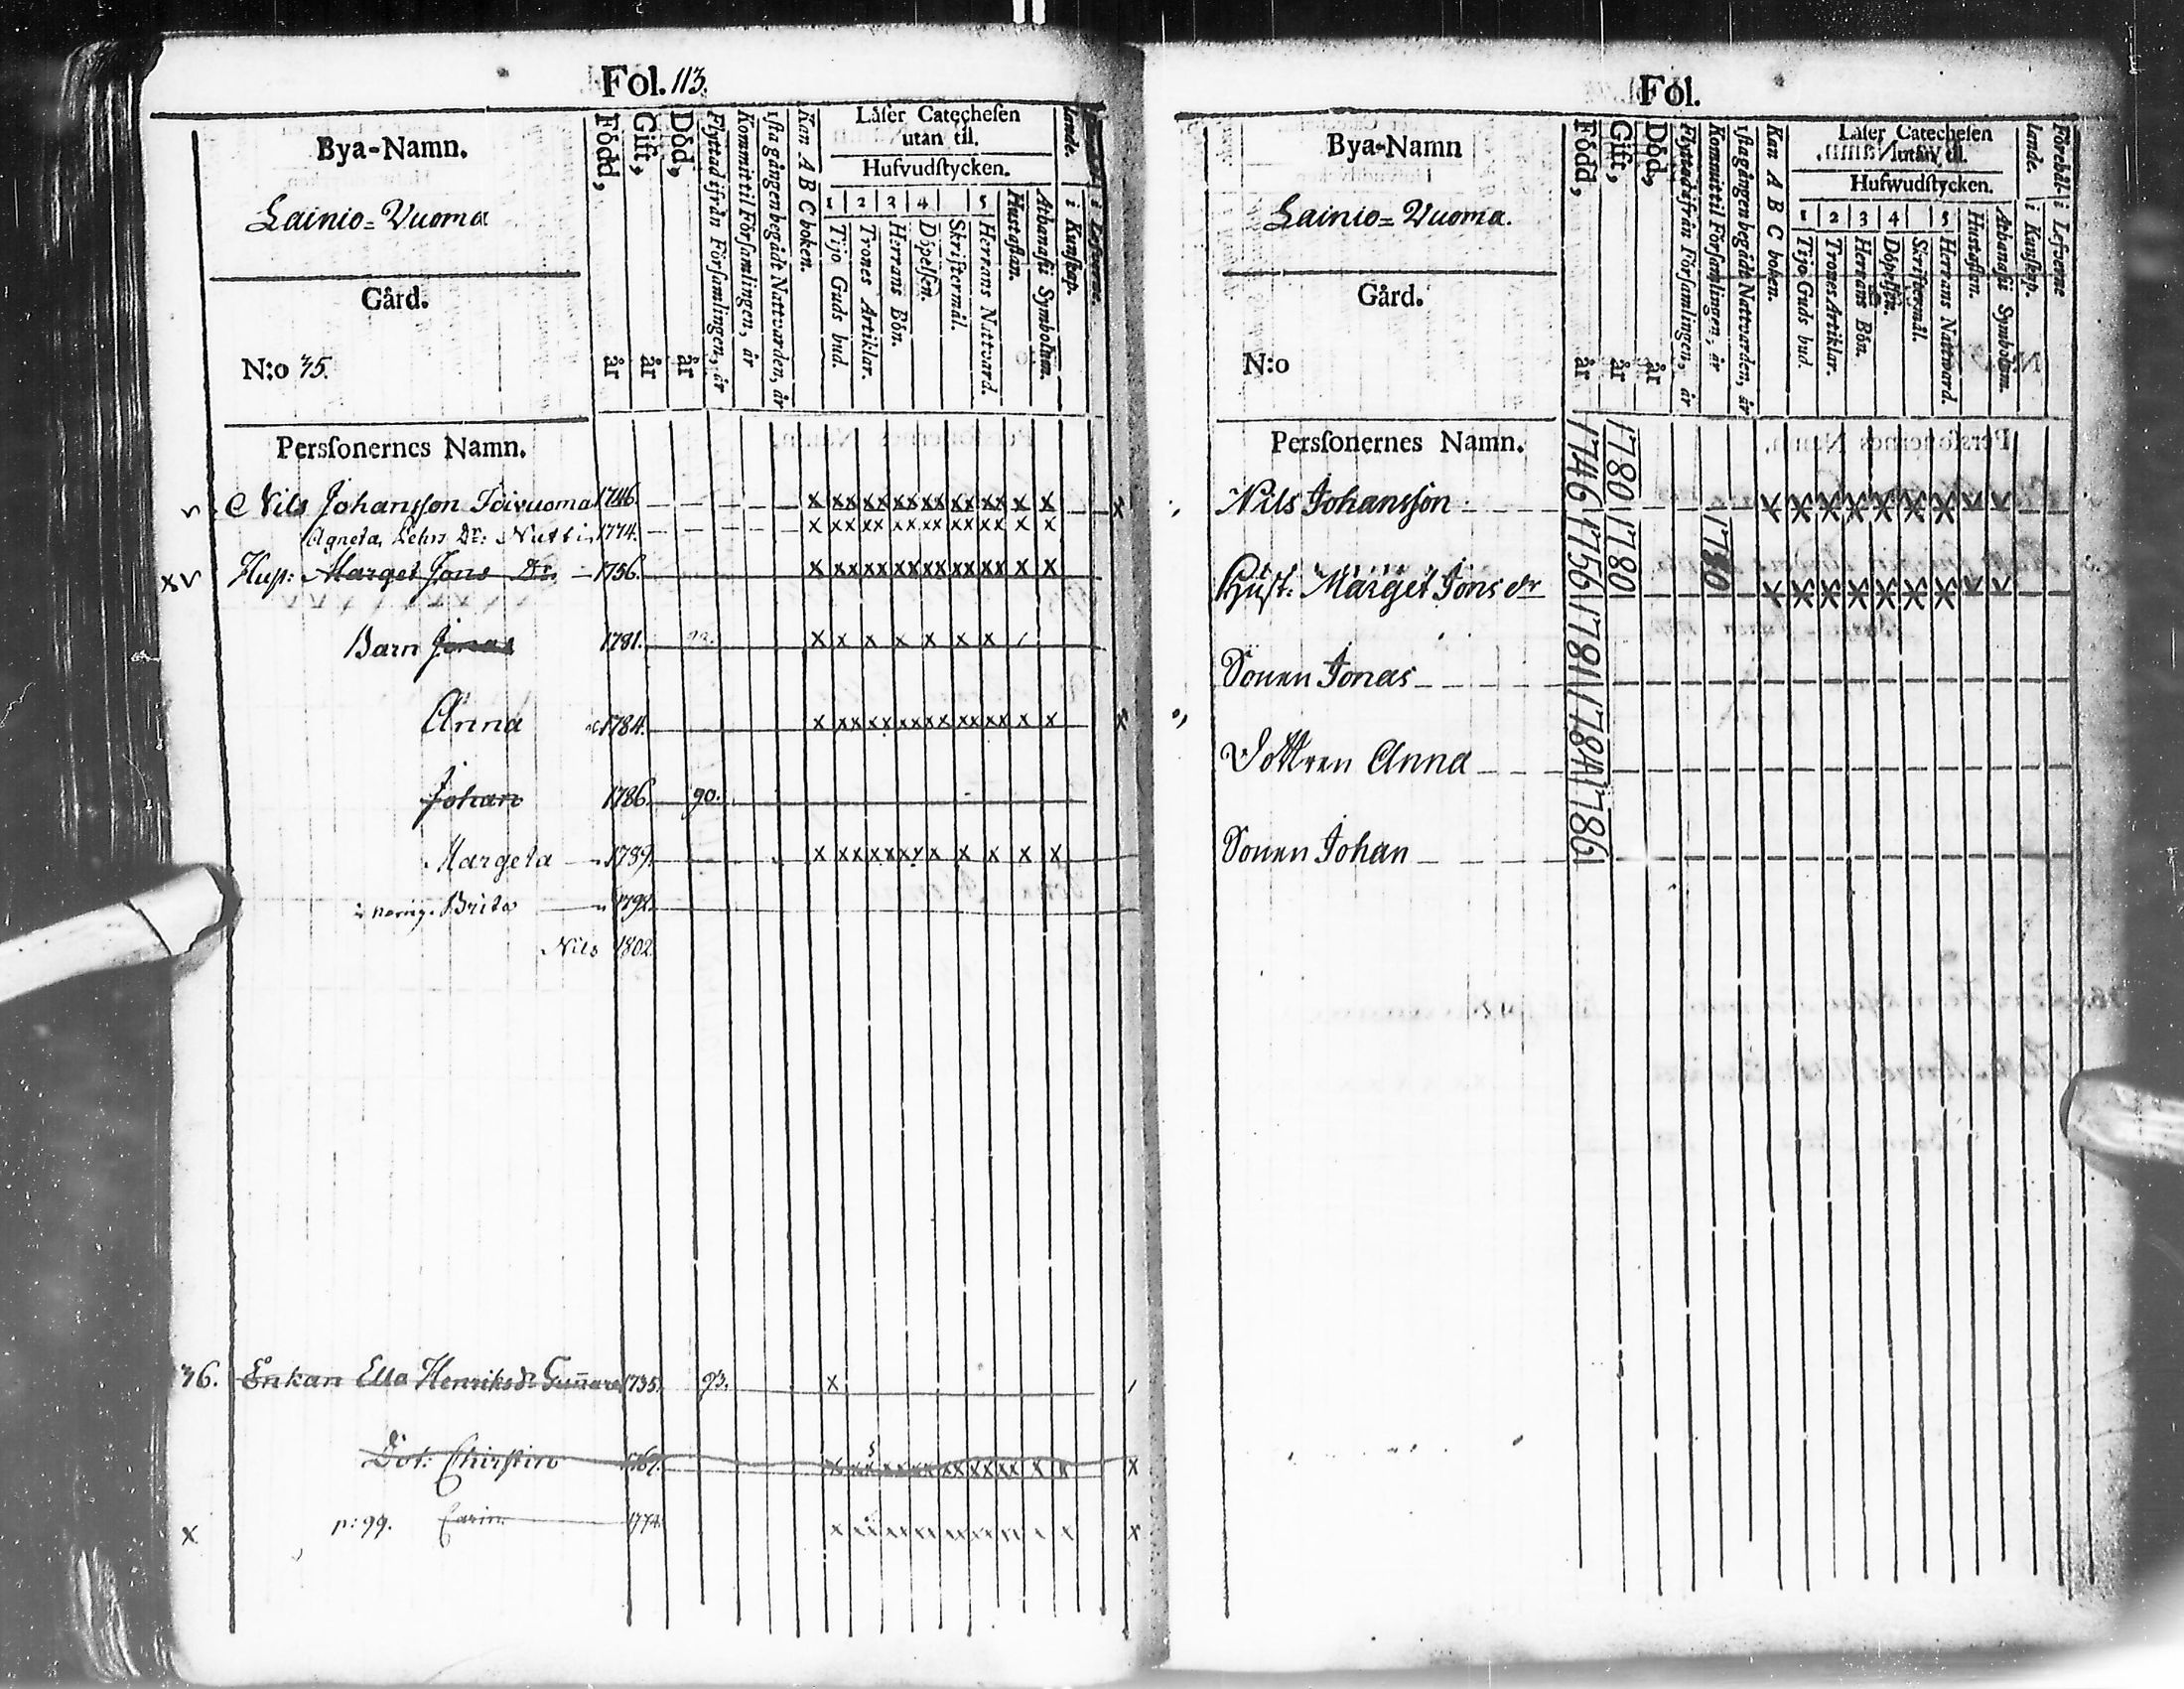 Fol. 113.
Bya-Namn.
Lainio=Vuoma
Gård.
N:o 35.
Född, år
Gift, år
Död, år
Flyttad ifrån Församlingen, år
Kommit til Församlingen, år
1sta gången begådt Nattvarden, år
Kan A B C boken.
Låser Catechesen
utan til.
Hufvudstycken.
1 2 3 4 5
Tijo Guds bud.
Trones Artiklar.
Herrans Bön.
Döpelsen.
Skriftermål.
Herrans Nattvard.
Hustaflan.
Athanasii Symbolum.
i Kunskap.
Persſonernes Namn.
Nils Johansſon Taivuoma 1746. x xx xx xx xx xx xx x x x
Agneta Lehrs Dr: Nutti 1774. x xx xx xx xx xx xx x x
Hus: Marget Jons Dr. 1756. x xx xx xx xx xx xx x x
Barn Jonas 1781. x x x x x x x
Anna 1784. x xx xx xx xx xx xx x x x
Johan 1786. 90.
Margeta 1789. x xx xx xx x x x x x
Brita 1792.
Nils 1802.
36. Enkan Ella Henriksdr Gunnare 1735. 93. x
Dot: Chirstin 1767. x
x p: 99. Carin 1774. x
Fol.
Bya-Namn
Lainio=Vuoma.
Gård.
N:o
Född, år
Gift, år
Död, år
Flyttad ifrån Församlingen, år
Kommit til Församlingen, år
1sta gången begådt Nattvarden, år
Kan A B C boken.
Låser Catechesen
utan til.
Hufwudstycken.
1 2 3 4 5
Tijo Guds bud.
Trones Artiklar.
Herrans Bön.
Döpelsen.
Skriftermål.
Herrans Nattvard.
Hustaflan.
Athanasii Symbolum.
i Kunskap.
i Lefverne
Persſonernes Namn.
Nils Johansſon 1746 1780 x x x x x x x x x
Hust. Marget Jons dr 1756 1780 1780 x x x x x x x x x
Sonen Jonas 1781
Dottren Anna 1784
Sonen Johan 1786